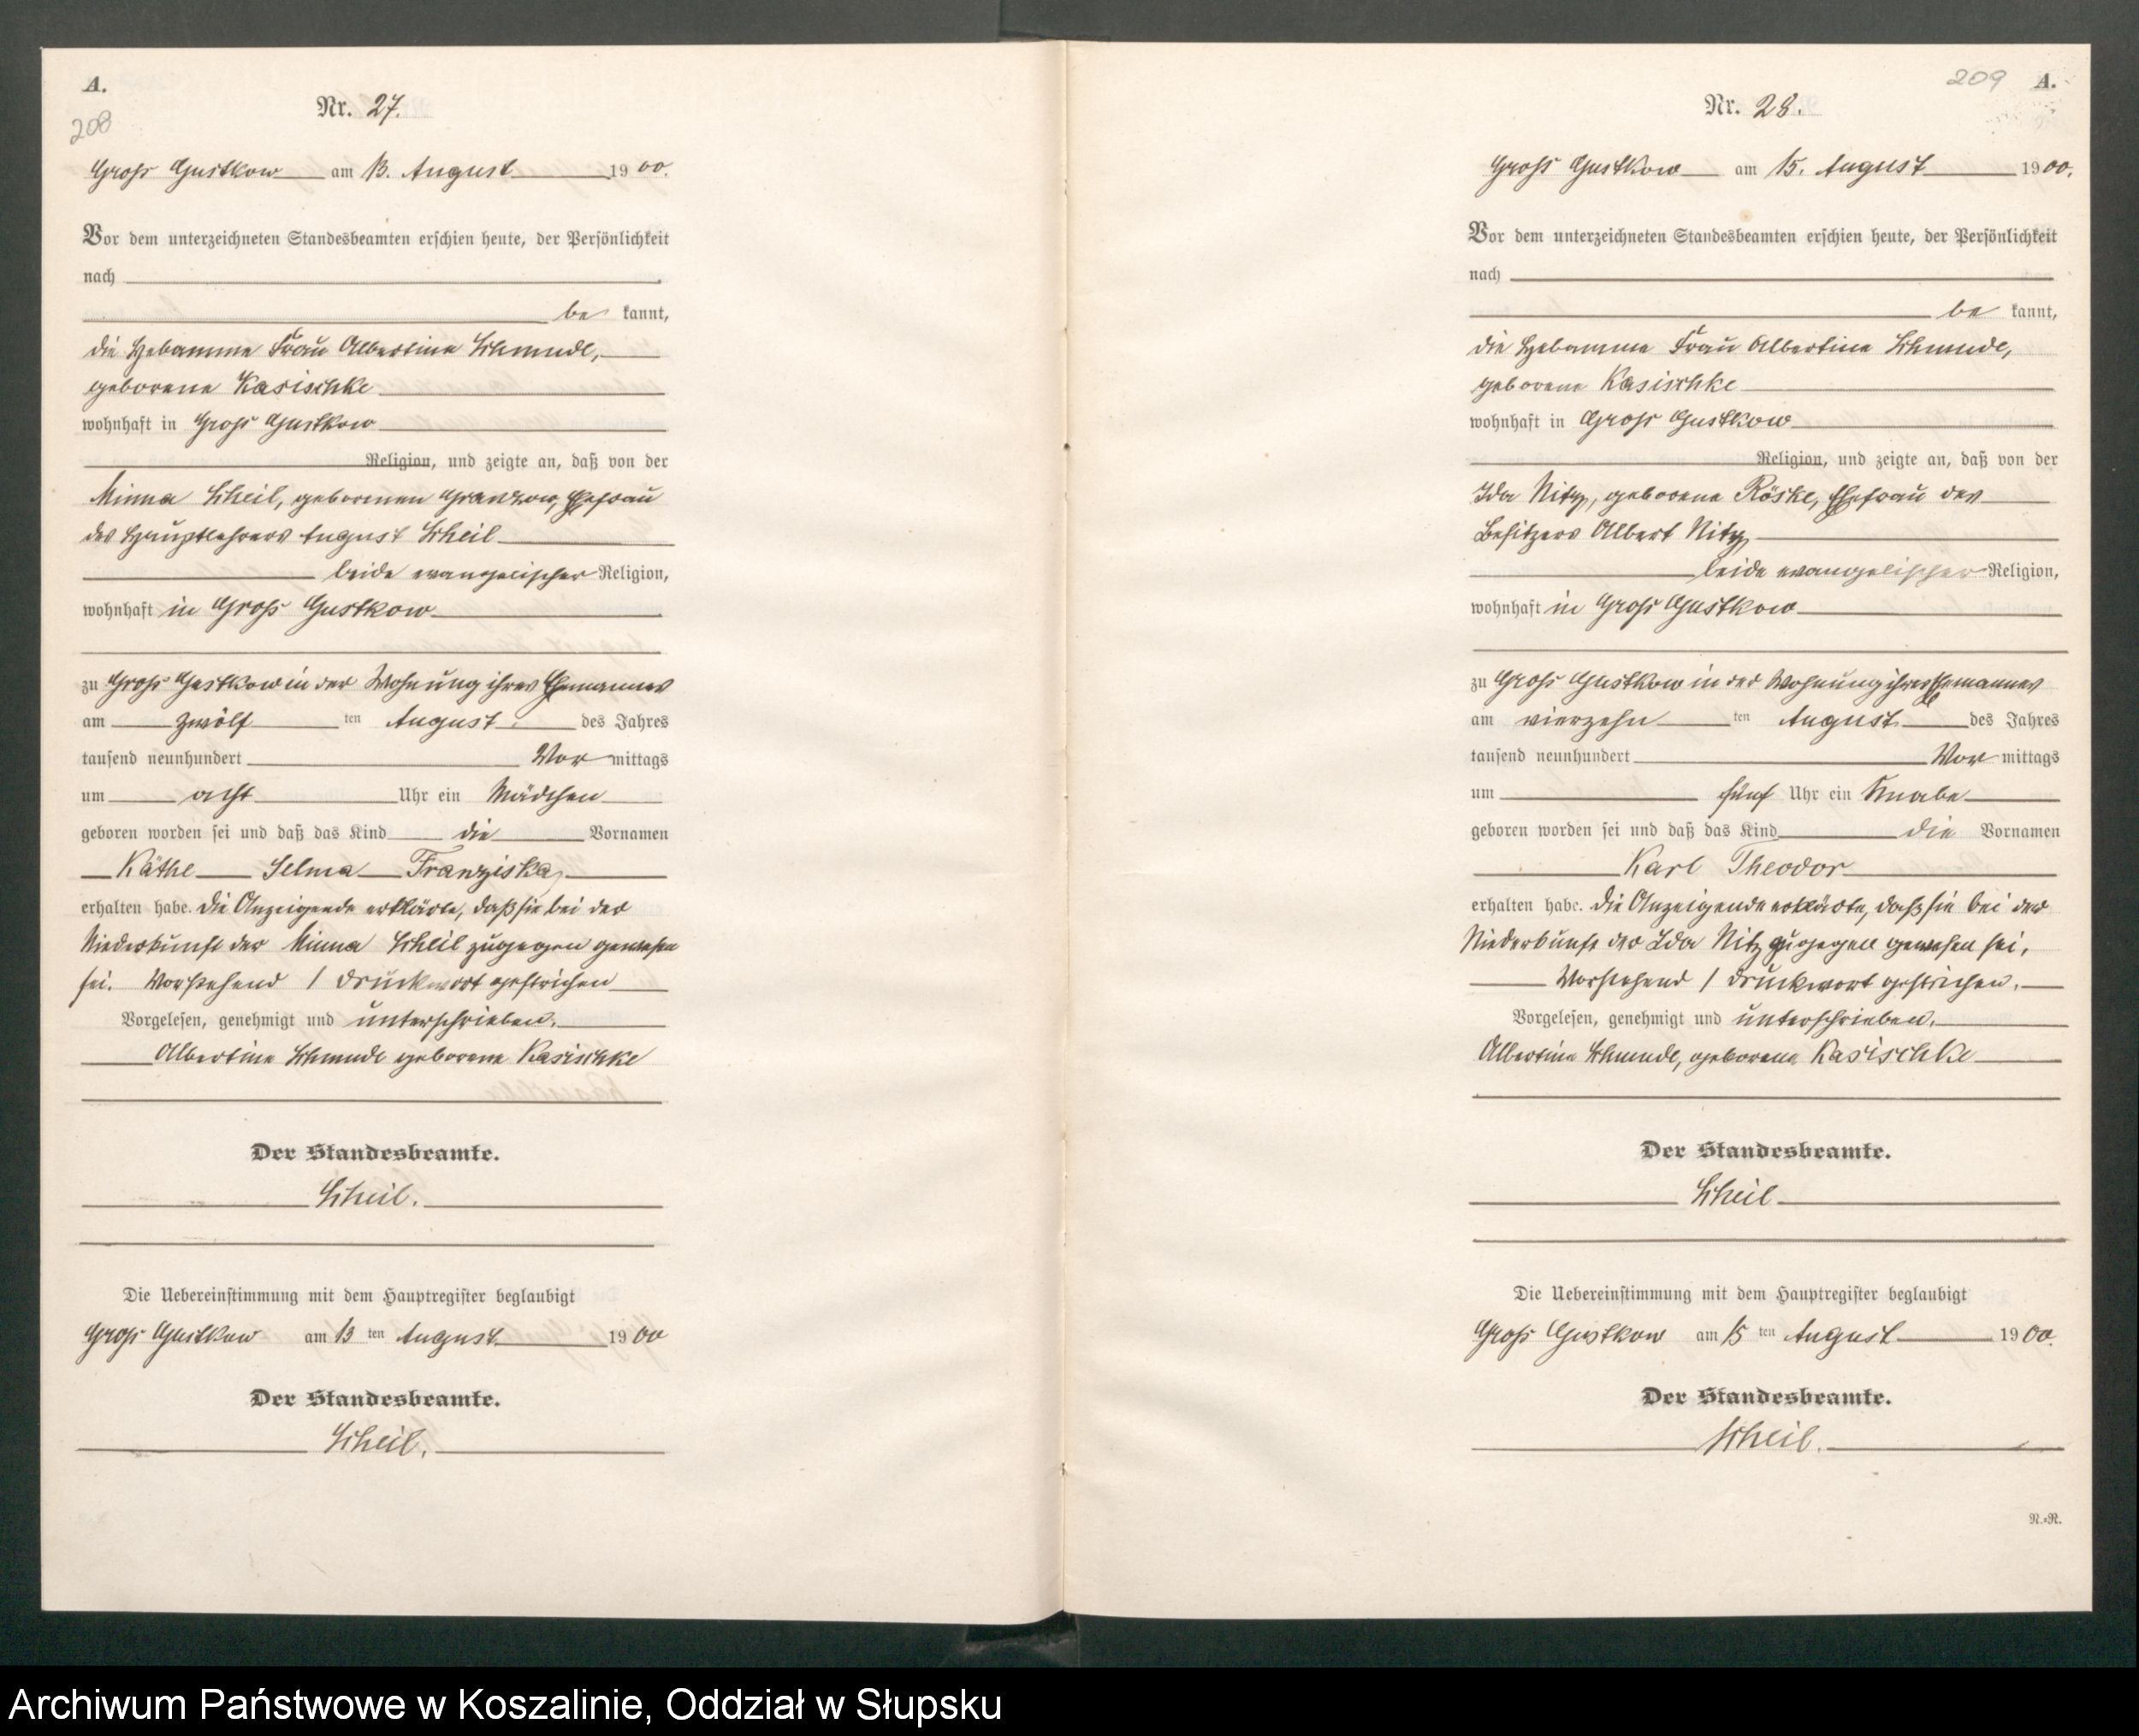 A.
208
Nr. 27.
Groß Gustkow am 13. August 1900.
Vor dem unterzeichneten Standesbeamten erschien heute, der Persönlichkeit
nach
be kannt,
die Hebamme Frau Albertine Schmude,
geborene Kasischke
wohnhaft in Groß Gustkow
Religion, und zeigte an, daß von der
Minna Scheil, geborenen Granzow, Ehefrau
des Hauptlehrers August Scheil
beide evangelischer Religion,
wohnhaft in Groß Gustkow
zu Groß Gustkow in der Wohnung ihres Ehemannes
am zwölf ten August des Jahres
tausend neunhundert Vor mittags
um acht Uhr ein Mädchen
geboren worden sei und daß das Kind die Vornamen
Käthe Selma Franziska
erhalten habe. Die Anzeigende erklärte, daß sie bei der
Niederkunft der Minna Scheil zugegen gewesen
sei. Vorstehend 1 Druckwort gestrichen
Vorgelesen, genehmigt und unterschrieben.
Albertine Schmude geborene Kasischke
Der Standesbeamte.
Scheil.
Die Uebereinstimmung mit dem Hauptregister beglaubigt
Groß Gustkow am 13 ten August 1900
Der Standesbeamte.
Scheil.
209 A.
Nr. 28.
Groß Gustkow am 15. August 1900.
Vor dem unterzeichneten Standesbeamten erschien heute, der Persönlichkeit
nach
be kannt,
die Hebamme Frau Albertine Schmude,
geborene Kasischke
wohnhaft in Groß Gustkow
Religion, und zeigte an, daß von der
Ida Nitz, geborene Röske, Ehefrau des
Besitzers Albert Nitz
beide evangelischer Religion,
wohnhaft in Groß Gustkow
zu Groß Gustkow in der Wohnung ihres Ehemannes
am vierzehn ten August des Jahres
tausend neunhundert Vor mittags
um fünf Uhr ein Knabe
geboren worden sei und daß das Kind die Vornamen
Karl Theodor
erhalten habe. Die Anzeigende erklärte, daß sie bei der
Niederkunft der Ida Nitz zugegen gewesen sei.
Vorstehend 1 Druckwort gestrichen.
Vorgelesen, genehmigt und unterschrieben.
Albertine Schmude, geborene Kasischke
Der Standesbeamte.
Scheil
Die Uebereinstimmung mit dem Hauptregister beglaubigt
Groß Gustkow am 15 ten August 1900.
Der Standesbeamte.
Scheil.
N.=R.
Archiwum Państwowe w Koszalinie, Oddział w Słupsku